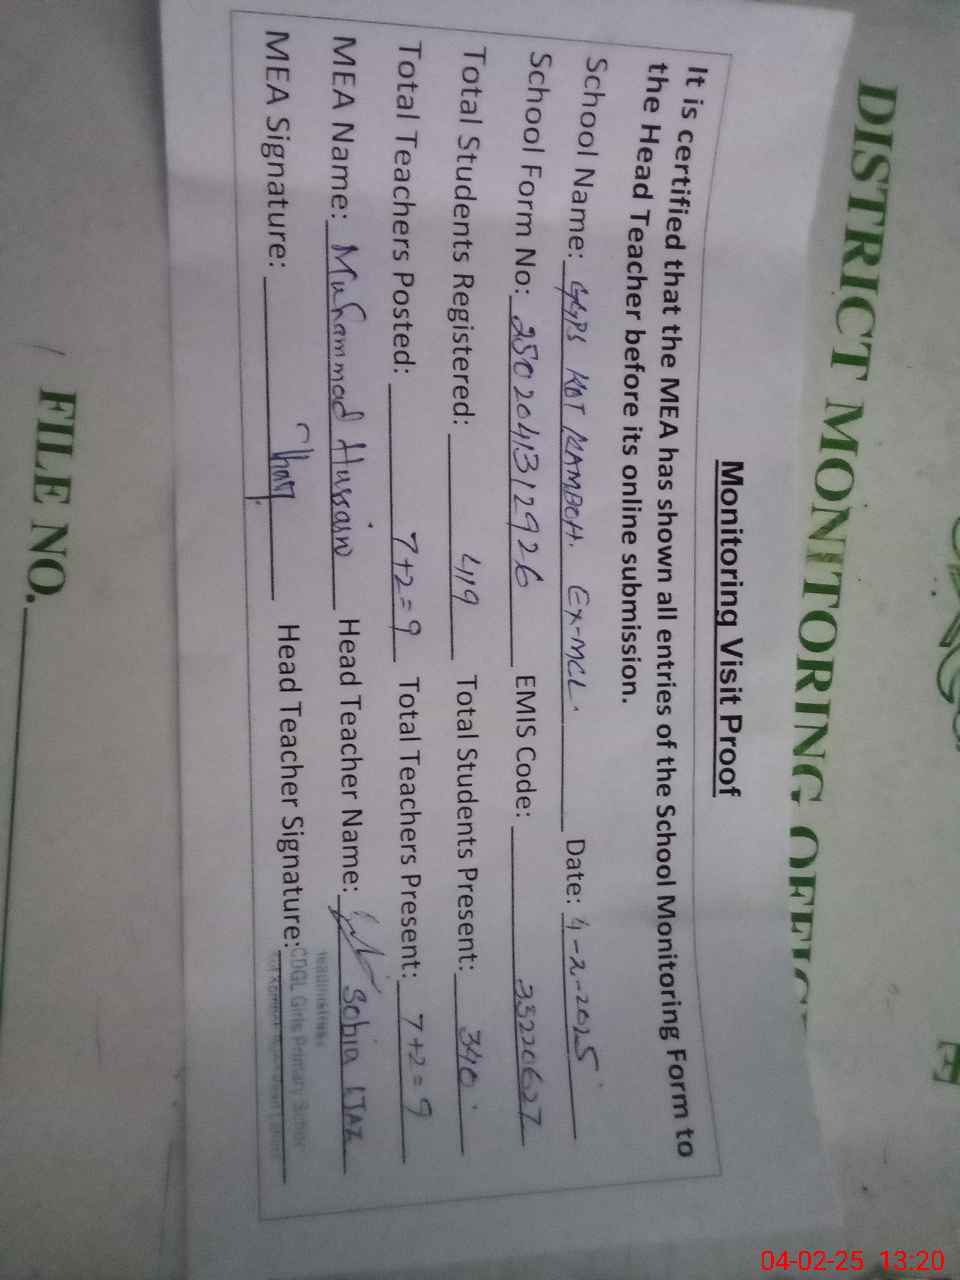 DISTRICT MONITORING OFFIC
Monitoring Visit Proof
It is certified that the MEA has shown all entries of the School Monitoring Form to
the Head Teacher before its online submission.
School Name: GGPS KOT KAMBOH. EX-MCL. Date: 4-2-2025
School Form No: 2502041312926 EMIS Code: 35220627
Total Students Registered: 419 Total Students Present: 340
Total Teachers Posted: 7+2=9 Total Teachers Present: 7+2=9
MEA Name: Muhammad Hussain Head Teacher Name: Sobia IJAZ
MEA Signature: Head Teacher Signature:
Headmistress
CDGL Girls Primary School
FILE NO.
04-02-25 13:20